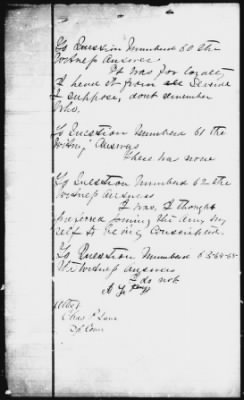 To Question Numberd 60 the
Witness Answers
It was for loyalty
I heard it from all Several
I suppose, dont remember
Who.
To Question Numberd 61 the
Witness Answers
There was none
To Question Numberd 62 the
Witness Answers
I was, I thought
preferred joining the Army my
self to being Conscripted.
To Question Numberd 63-64-65-
The Witness answers
I do not
Attest
Chas P Lane
Spl Comr